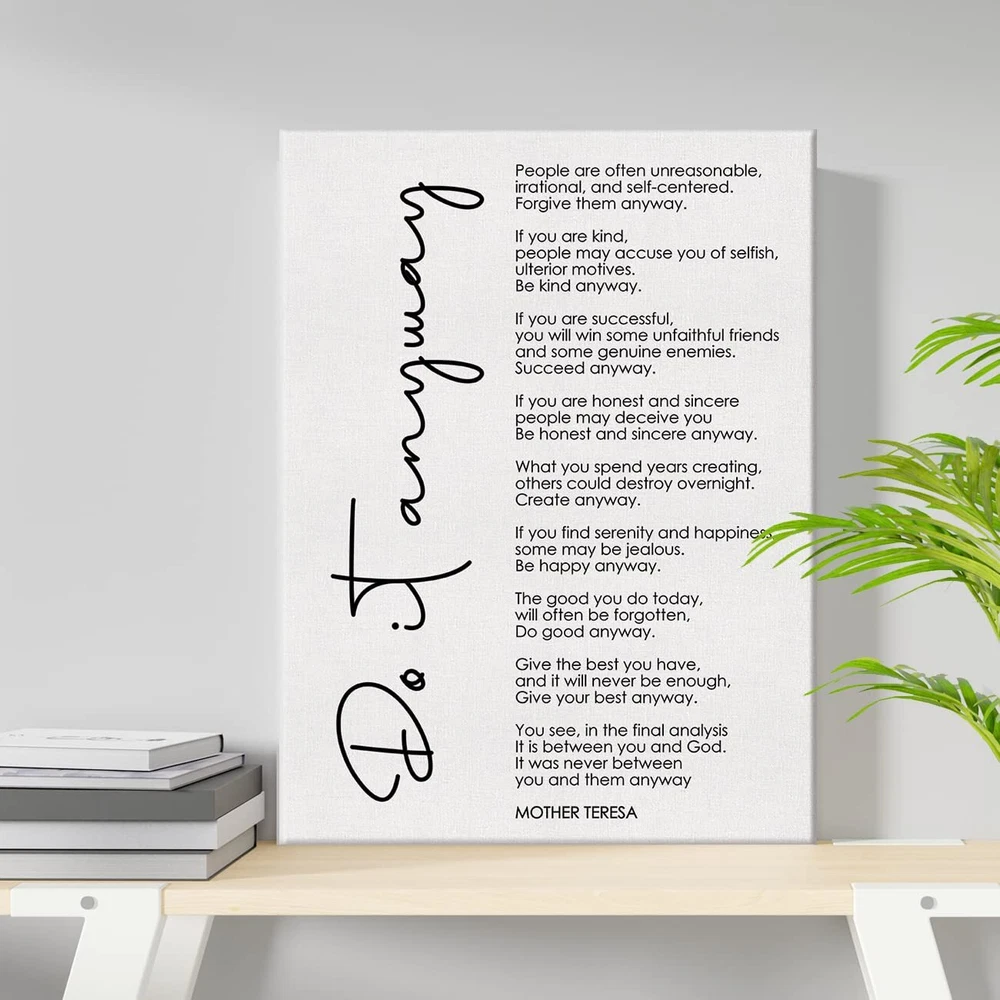 Do it anyway
People are often unreasonable,
irrational, and self-centered.
Forgive them anyway.
If you are kind,
people may accuse you of selfish,
ulterior motives.
Be kind anyway.
If you are successful,
you will win some unfaithful friends
and some genuine enemies.
Succeed anyway.
If you are honest and sincere
people may deceive you
Be honest and sincere anyway.
What you spend years creating,
others could destroy overnight.
Create anyway.
If you find serenity and happiness,
some may be jealous.
Be happy anyway.
The good you do today,
will often be forgotten,
Do good anyway.
Give the best you have,
and it will never be enough,
Give your best anyway.
You see, in the final analysis
It is between you and God.
It was never between
you and them anyway
MOTHER TERESA